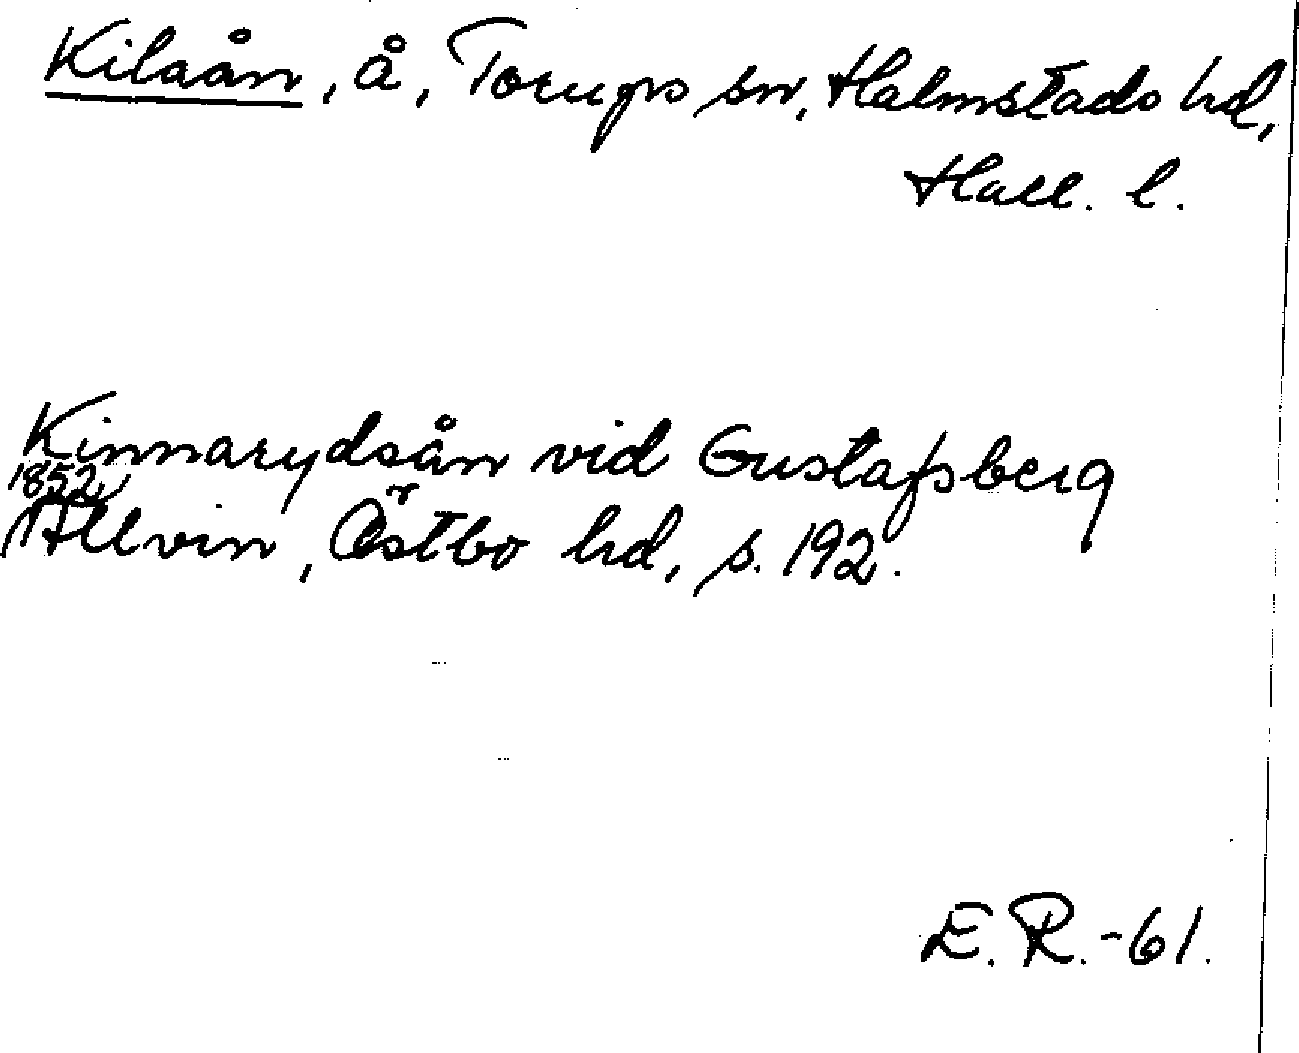 Kilaån, å, Torups sn, Halmstads hd,
Hall. l.
Kinnarydsån vid Gustafsberg
1852
Allvin, Östbo hd, s. 192.
E. R. -61.